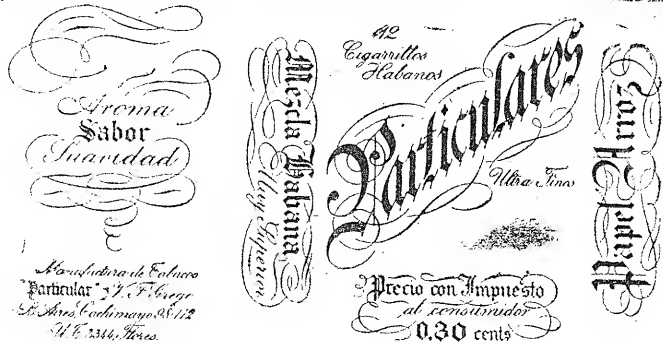 Aroma
Sabor
Suavidad
Manufactura de Tabacos
"Particular" V. F. Grego
Bs. Aires, Cachimayo
U. T. 2344, Flores.
Mezcla Habana
Muy Superior
12
Cigarrillos
Habanos
Particulares
Ultra Finos
Precio con Impuesto
al consumidor
0.30 cents
Papel Arroz